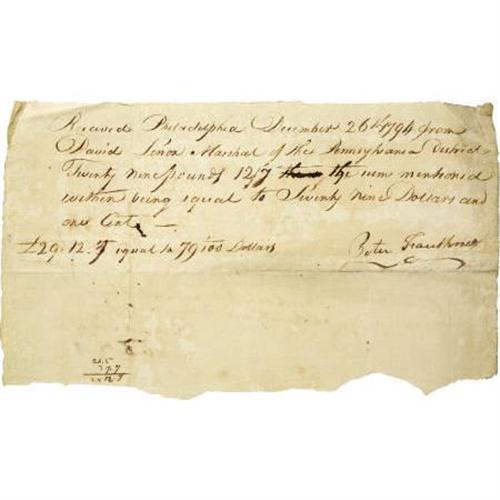 Receved Philadelphia December 26th 1794 from
David Lenox Marshal of the Pennsylvania District
Twenty nine pounds 12/7 the sum mentioned
within being equal to Seventy nine Dollars and
one Cent
£29.12.7 equal to 79 1/100 Dollars
Peter Faulkner